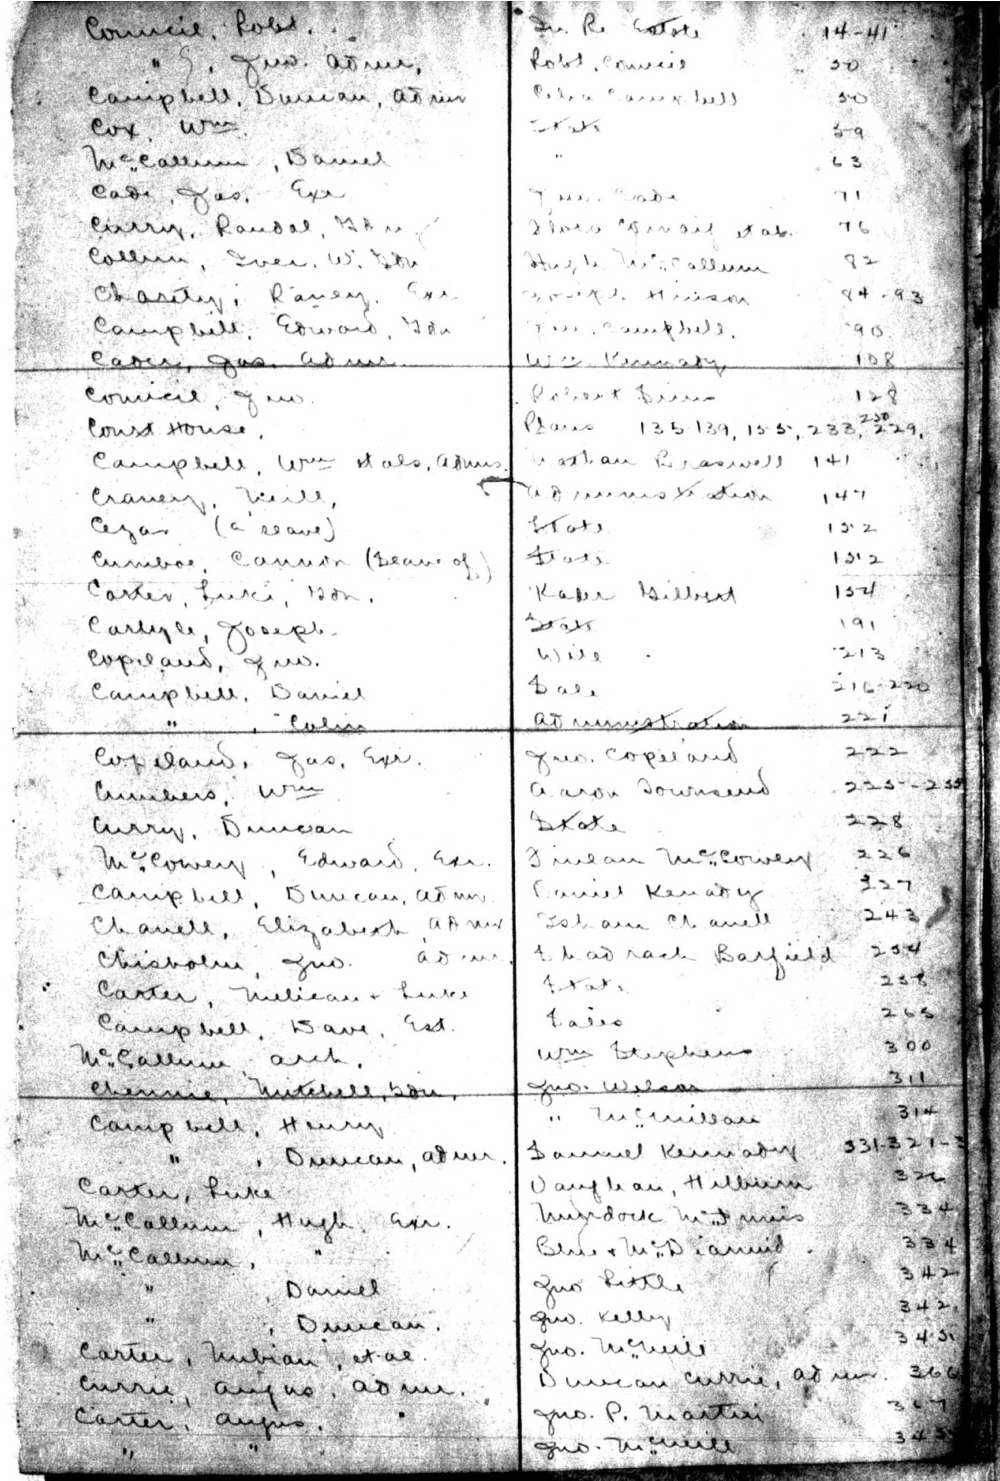 Council, Robt. In Re Estate 14-41
" , Jno. Admr. Robt. Council 50
Campbell, Duncan, Admr Celia Campbell 50
Cox, Wm. State 59
McCallum, Daniel " 63
Cade, Jas. Exr Jno. Cade 71
Curry, Randal, Gdn et als. 76
Collum, W. Gdn Hugh McCallum 82
Chasity, Raney, Exr Joseph Hinson 84-93
Campbell, Edward, Gdn Jno. Campbell. 90
Caden, Jas. Admr. Wm. Kennady 108
Council, Jno. Robert 128
Court House. Plans 135-139, 155, 233, 230 229,
Campbell, Wm et als, Admrs. Nathan Braswell 141
Craney, Neill, Administration 147
Cezar (a slave) State 152
Cumboe, Cannon (Slave of) State 152
Carter, Luke, Gdn. Kader Gilbert 154
Carlyle, Joseph State 191
Copeland, Jno. Will 213
Campbell, Daniel Sale 216-220
" , Colin Administration 221
Copeland, Jas, Exr. Jno. Copeland 222
Cumbers, Wm Aaron Townsend 225-235
Curry, Duncan State 228
McCowey, Edward, Exr. Finlan McCowey 226
Campbell, Duncan, Admr. Daniel Kenady 227
Chanell, Elizabeth, Admr Isham Chanell 243
Chisholm, Jno. Admr. Shadrack Barfield 254
Carter, Milican + Luke State 258
Campbell, Dave, Est. Sales 265
McCallum, Arch. Wm Stephens 300
Chennie, Mitchell, Gdn. Jno. Wilson 311
Campbell, Henry " McMillan 314
" , Duncan, Admr. Samuel Kennady 331-321-3
Carter, Luke Vaughan, Hilburn 326
McCallum, Hugh, Exr. Murdock McInnis 334
McCallum, " Blue + McDiarmid 334
" , Daniel Jno Little 342
" , Duncan. Jno. Kelly 342
Carter, Nubian, et al Jno. McNeill 345
Currie, Angus, Admr. Duncan Currie, Admr. 366
Carter, Angus. Jno. P. Martin 367
" " Jno. McNeill 345